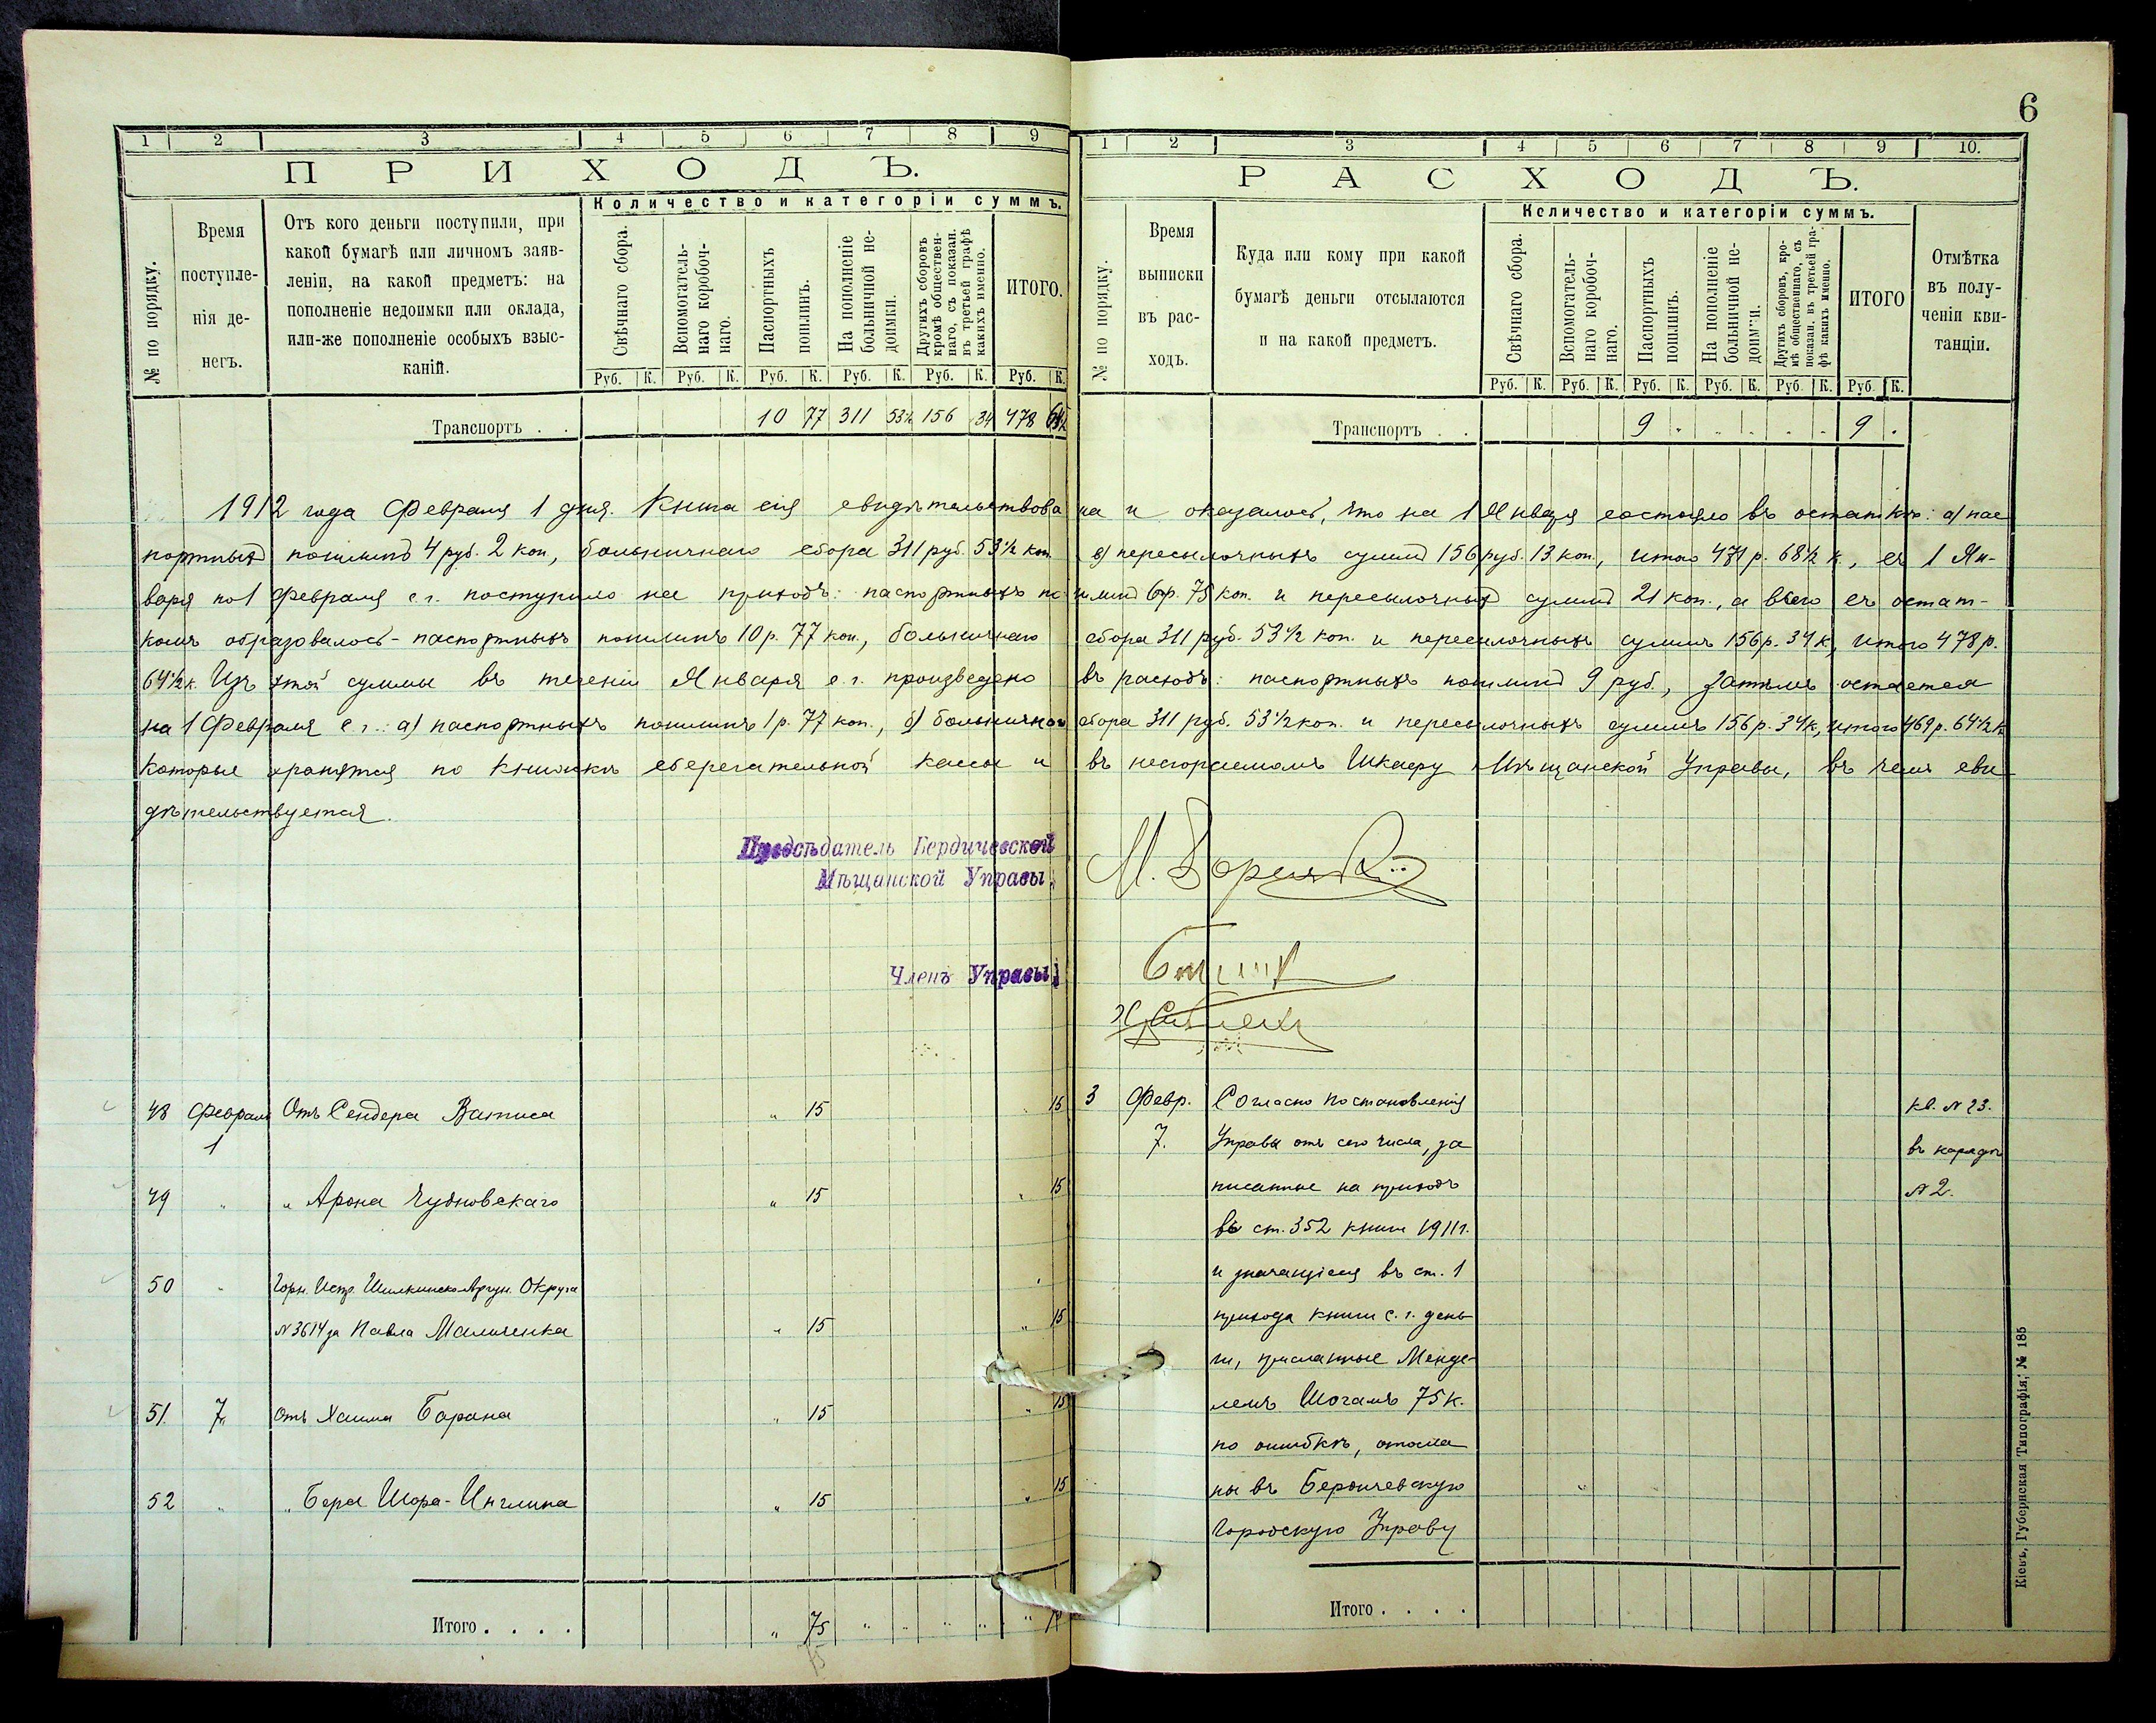 6
1 2 3 4 5 6 7 8 9
ПРИХОДЪ.
№ по порядку.
Время поступле-
нія де-
негъ.
Отъ кого деньги поступили, при
какой бумагѣ или личномъ заяв-
леніи, на какой предметъ: на
пополненіе недоимки или оклада,
или-же пополненіе особыхъ взыс-
каній.
Количество и категоріи суммъ.
Свѣчнаго сбора.
Вспомогатель-
наго коробоч-
наго.
Паспортныхъ
пошлинъ.
На пополненіе
больничной не-
доимки.
Другихъ сборовъ
кромѣ обществен-
наго, съ показан.
въ третьей графѣ
какихъ именно.
ИТОГО.
Руб. К. Руб. К. Руб. К. Руб. К. Руб. К. Руб. К.
Транспортъ . . 10 77 311 53½ 156 34 478 64½
1 2 3 4 5 6 7 8 9 10.
РАСХОДЪ.
№ по порядку.
Время
выписки
въ рас-
ходъ.
Куда или кому при какой
бумагѣ деньги отсылаются
и на какой предметъ.
Количество и категоріи суммъ.
Свѣчнаго сбора.
Вспомогатель-
наго коробоч-
наго.
Паспортныхъ
пошлинъ.
На пополненіе
больничной не-
доимки.
Другихъ сборовъ, кро-
мѣ общественнаго, съ
показан. въ третьей гра-
фѣ какихъ именно.
ИТОГО
Отмѣтка
въ полу-
ченіи кви-
танціи.
Руб. К. Руб. К. Руб. К. Руб. К. Руб. К. Руб. К.
Транспортъ . . 9 " " " " " 9 "
1912 года Февраля 1 дня. Книга сія свидѣтельствована и оказалось, что на 1 Января состояло въ остаткѣ: а) пас
портныхъ пошлинъ 4 руб. 2 коп, больничнаго сбора 311 руб. 53½ коп в) пересылочныхъ суммъ 156 руб. 13 коп., итого 471 р. 68½ к., съ 1 Ян-
варя по 1 Февраля с. г. поступило на приходъ: паспортныхъ пошлинъ 6 р. 75 коп. и пересылочныхъ суммъ 21 коп., а всего съ остат-
комъ образовалось - паспортныхъ пошлинъ 10 р. 77 коп., больничнаго сбора 311 руб. 53½ коп. и пересылочныхъ суммъ 156 р. 34 к, итого 478 р.
64½ к. Изъ этой суммы въ теченіи Января с. г. произведено въ расходъ: паспортныхъ пошлинъ 9 руб., затѣмъ остается
на 1 Февраля с. г.: а) паспортныхъ пошлинъ 1 р. 77 коп., б) больничнаго сбора 311 руб. 53½ коп. и пересылочныхъ суммъ 156 р. 34 к, итого 469 р. 64½ к
которые хранятся по книжкѣ сберегательной кассы и въ несгораемомъ шкафу Мѣщанской Управы, въ чемъ сви
дѣтельствуется.
Предсѣдатель Бердичевской
Мѣщанской Управы.
Членъ Управы:
48 Февраля 1 Отъ Сендера " 15 " 15
49 " " Арона Чудновскаго " 15 " 15
50 " Горн. Испр. Шилкинско-Аргун. Округа
№ 3614 за Павла " 15 " 15
51. 7 " Отъ Хаима Барана " 15 " 15
52 " " Бера Шора- " 15 " 15
Итого . . . . " 75 " " " " " 75
75
3 Февр. 7. Согласно постановленія
Управы отъ сего числа, за
писанные на приходъ
въ ст. 352 книги 1911 г.
и значащіеся въ ст. 1
прихода книги с. г. день-
ги, присланные Менде-
лемъ 75 к.
по ошибкѣ, отосла
ны въ Бердичевскую
Городскую Управу
Кв. № 23.
въ нарядѣ
№ 2.
Итого . . . .
Кіевъ, Губернская Типографія; № 185